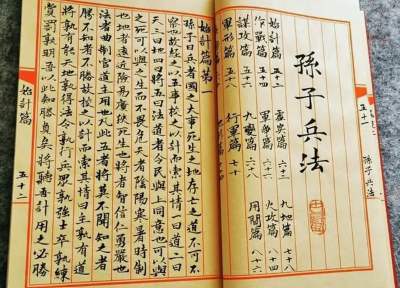 五十一 孫子兵法
孫子兵法
始計篇 五十二
作戰篇 五十四
謀攻篇
軍形篇 五十八
虛實篇 六十二
軍爭篇
九變篇 六十八
行軍篇 七十
九地篇 七十八
火攻篇 八十四
用間篇 八十六
始計篇第一
孫子曰兵者國之大事死生之地存亡之道不可不
察也故經之以五事校之以計而索其情一曰道二曰
天三曰地四曰將五曰法道者令民與上同意也可以與
之死可以與之生而不畏危天者陰陽寒暑時制
也地者遠近險易廣狹死生也將者智信仁勇嚴也
法者曲制官道主用也凡此五者將莫不聞知之者
勝不知者不勝故校之以計而索其情曰主孰有道
將孰有能天地孰得法令孰行兵眾孰強士卒孰練
賞罰孰明吾以此知勝負矣將聽吾計用之必勝
始計篇 五十二